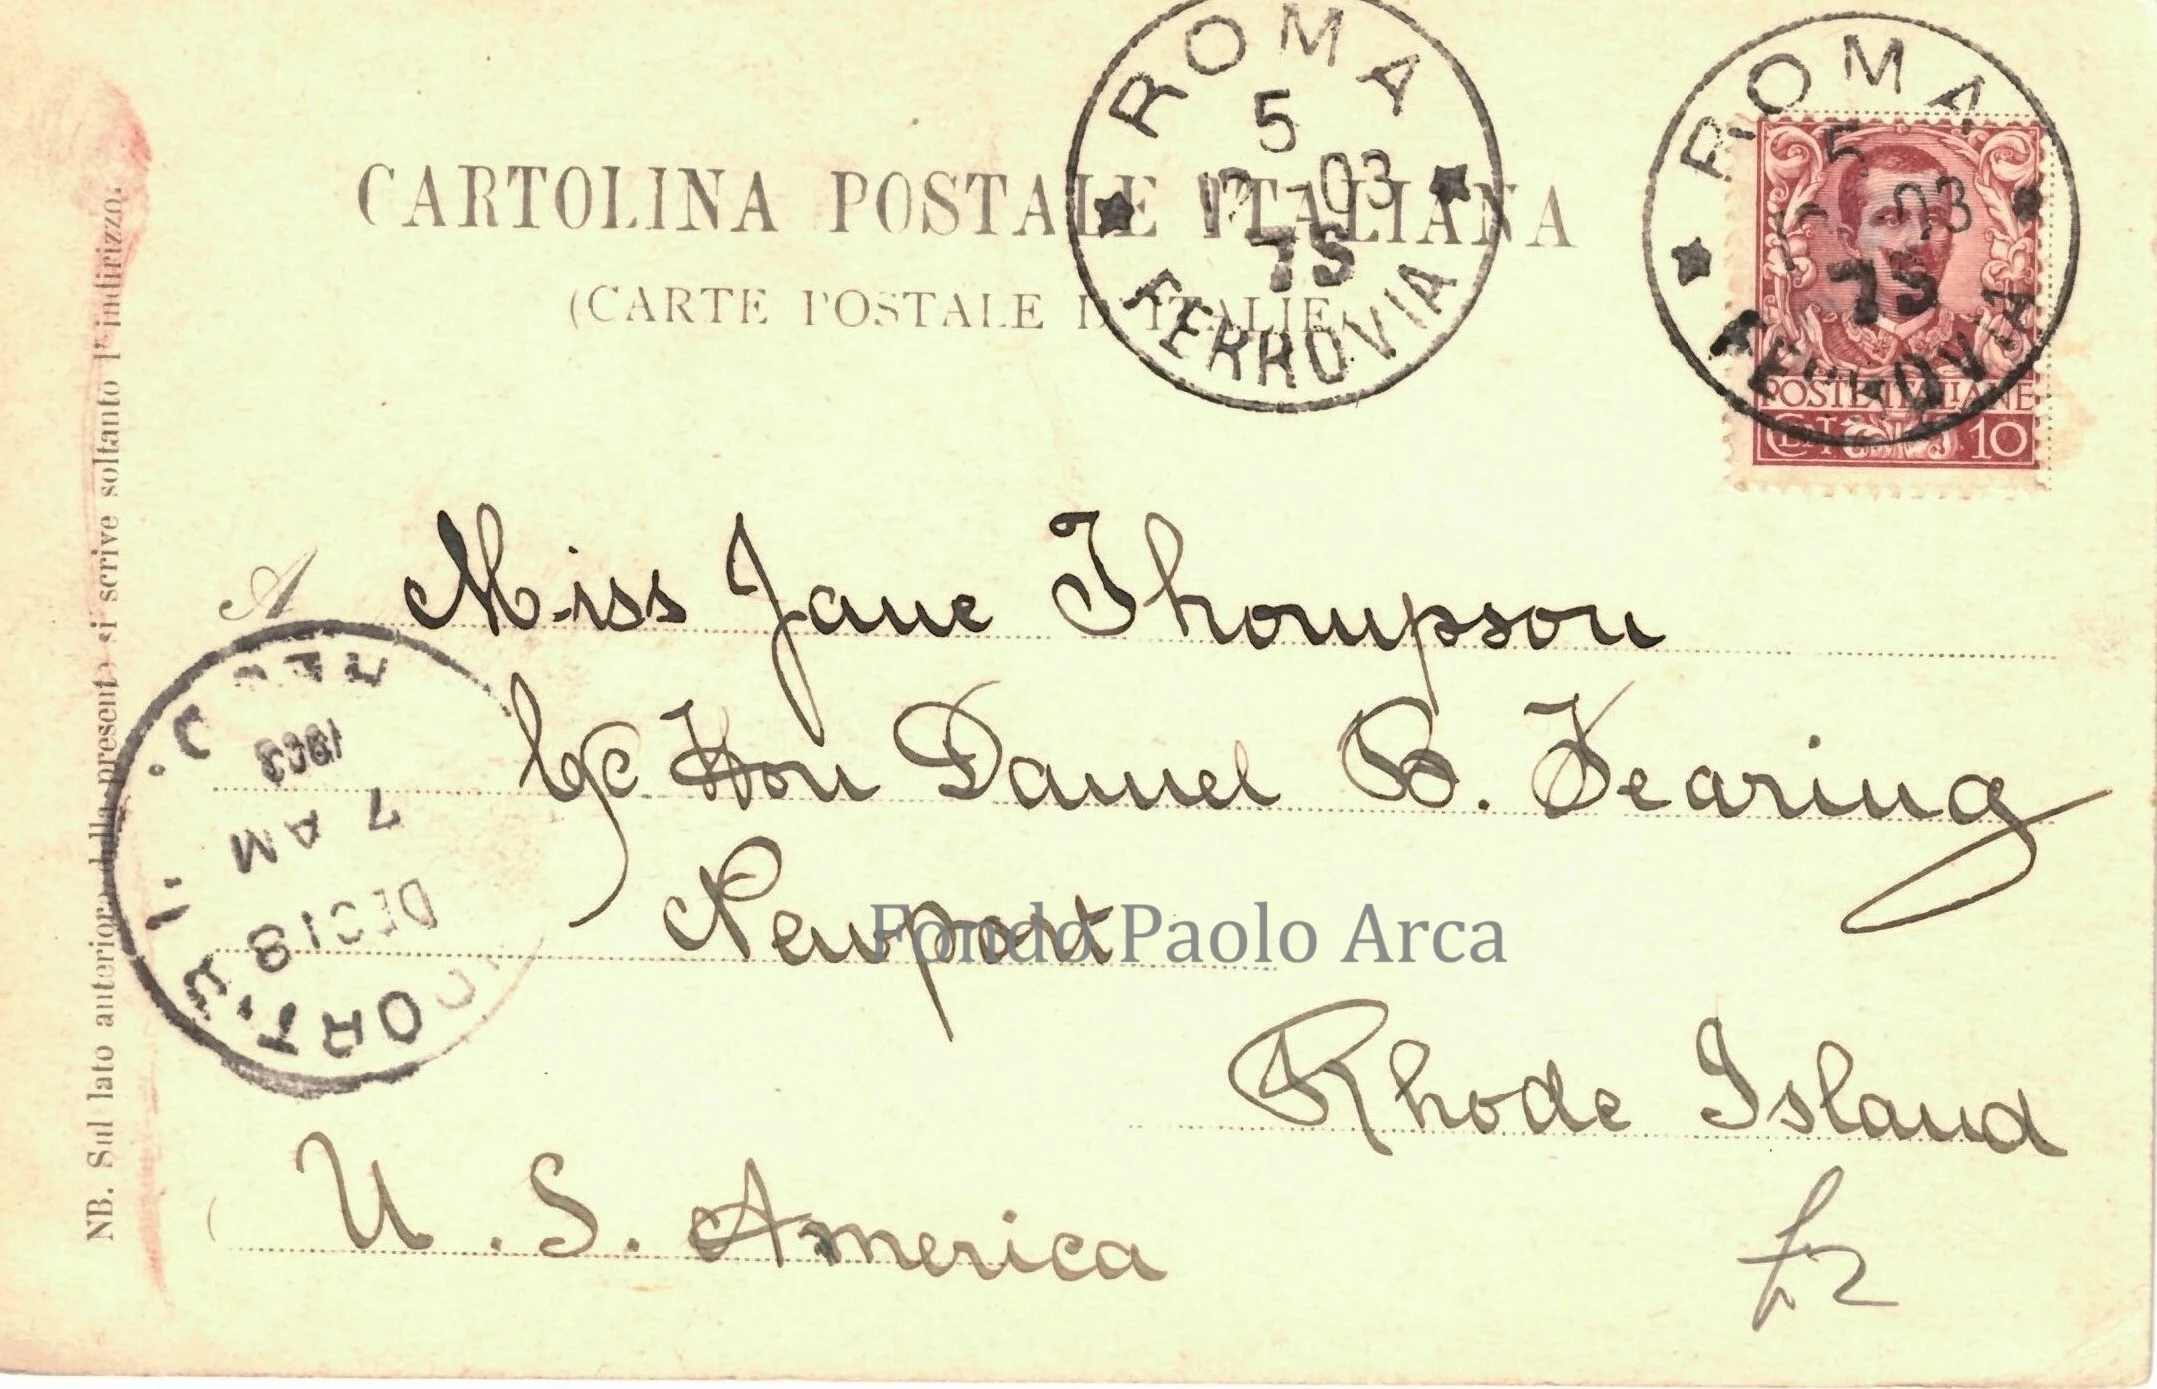 CARTOLINA POSTALE ITALIANA
(CARTE POSTALE D'ITALIE
ROMA
5
12 - 03
7S
FERROVIA
ROMA
5
12 - 03
7S
FERROVIA
POSTE ITALIANE
10
A Miss Jane Thompson
℅ Hon Daniel B. Fearing
Newport
Rhode Island
U. S. America
NB. Sul lato anteriore della presente si scrive soltanto l'indirizzo.
DEC 18
7 AM
1903
REC'D.
Fondo Paolo Arca